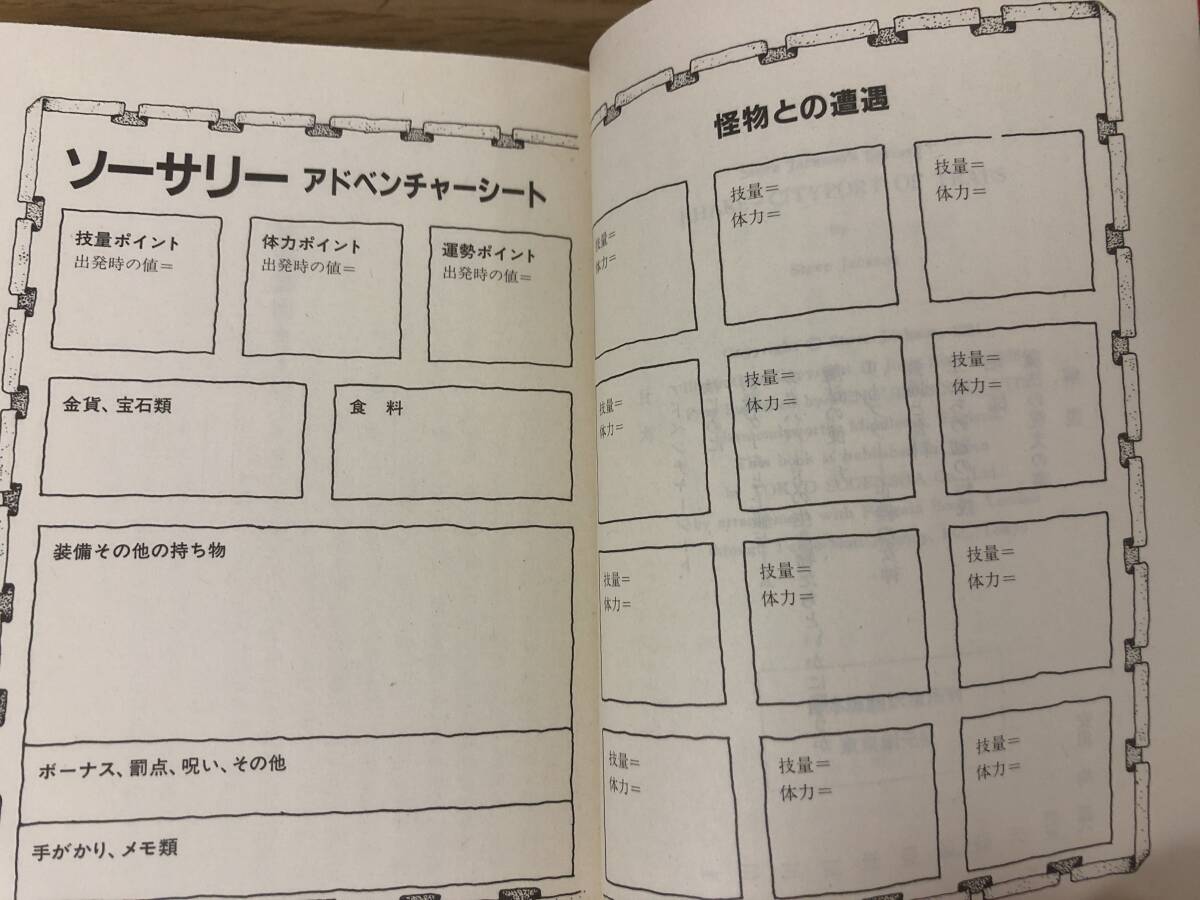 ソーサリー アドベンチャーシート
技量ポイント
出発時の値＝
体力ポイント
出発時の値＝
運勢ポイント
出発時の値＝
金貨、宝石類
食　料
装備その他の持ち物
ボーナス、罰点、呪い、その他
手がかり、メモ類
怪物との遭遇
技量＝
体力＝
技量＝
体力＝
技量＝
体力＝
技量＝
体力＝
技量＝
体力＝
技量＝
体力＝
技量＝
体力＝
技量＝
体力＝
技量＝
体力＝
技量＝
体力＝
技量＝
体力＝
技量＝
体力＝